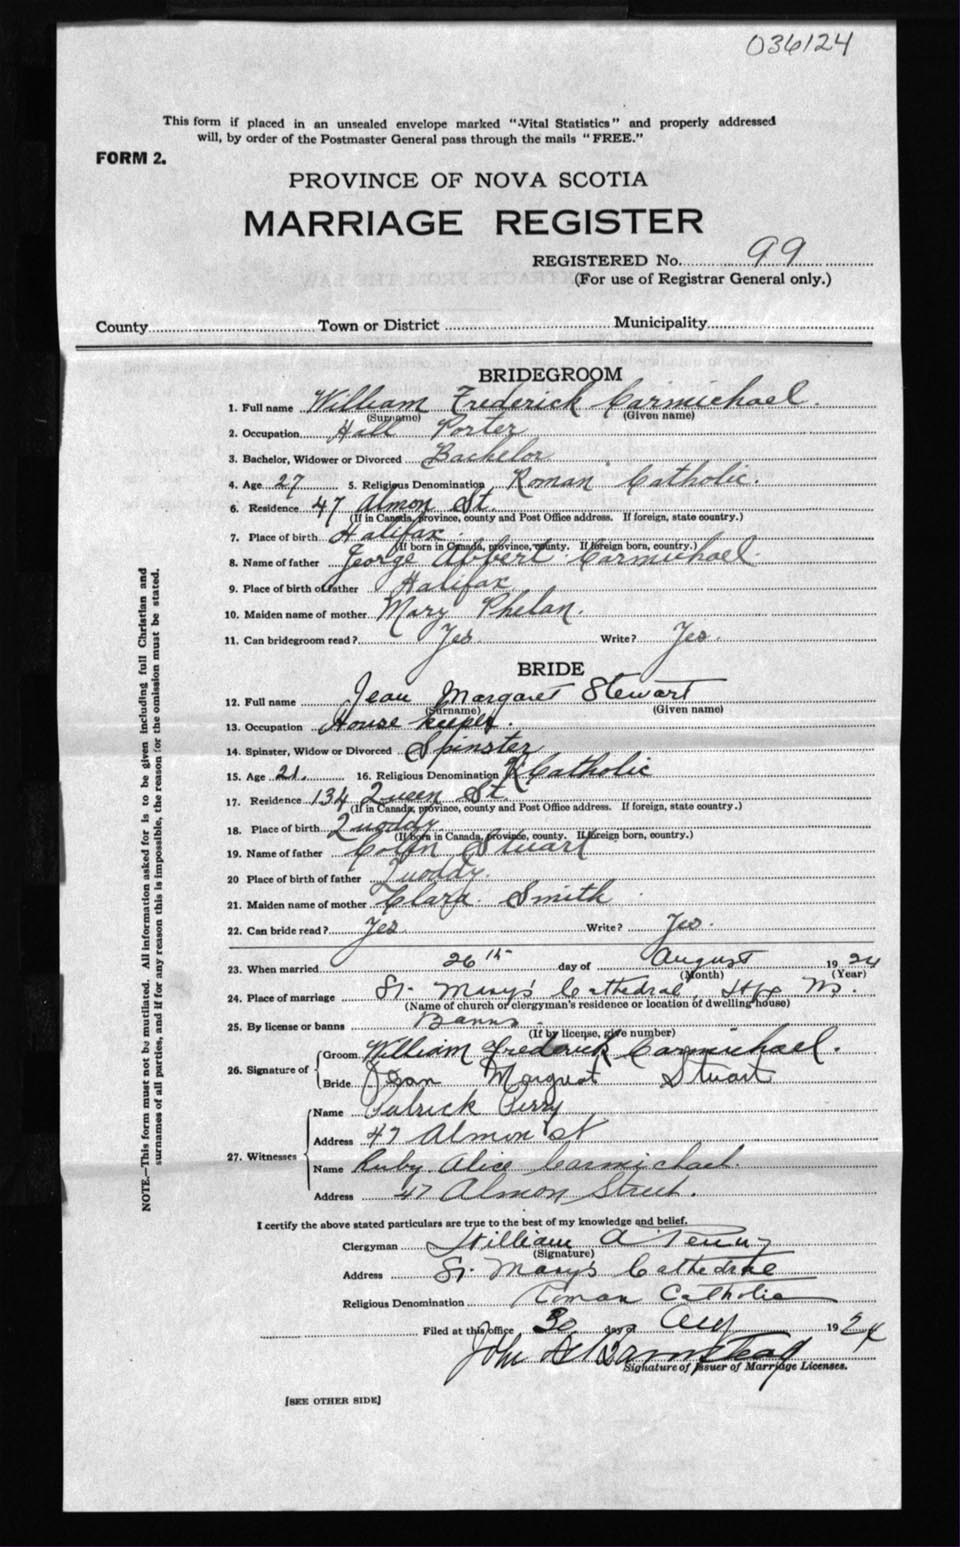 036124
This form if placed in an unsealed envelope marked "Vital Statistics" and properly addressed
will, by order of the Postmaster General pass through the mails "FREE."
FORM 2.
PROVINCE OF NOVA SCOTIA
MARRIAGE REGISTER
REGISTERED No. 99
(For use of Registrar General only.)
County Town or District Municipality
BRIDEGROOM
1. Full name William Frederick Carmichael.
(Surname) (Given name)
2. Occupation Hall Porter
3. Bachelor, Widower or Divorced Bachelor
4. Age 27 5. Religious Denomination Roman Catholic.
6. Residence 47 Almon St.
(If in Canada, province, county and Post Office address. If foreign, state country.)
7. Place of birth Halifax.
(If born in Canada, province, county. If foreign born, country.)
8. Name of father George Carmichael.
9. Place of birth of father Halifax
10. Maiden name of mother Mary Phelan.
11. Can bridegroom read? Yes Write? Yes.
BRIDE
12. Full name Jean Margaret Stewart
(Surname) (Given name)
13. Occupation House keeper.
14. Spinster, Widow or Divorced Spinster
15. Age 21. 16. Religious Denomination R Catholic
17. Residence 134 Queen St.
(If in Canada, province, county and Post Office address. If foreign, state country.)
18. Place of birth Quoddy.
(If born in Canada, province, county. If foreign born, country.)
19. Name of father Colin Stuart
20 Place of birth of father Quoddy.
21. Maiden name of mother Clara. Smith
22. Can bride read? Yes Write? Yes.
23. When married 26th day of August 1924
(Month) (Year)
24. Place of marriage St. Mary's Cathedral, Hfx NS.
(Name of church or clergyman's residence or location of dwelling house)
25. By license or banns Banns.
(If by license, give number)
26. Signature of Groom William Frederick Carmichael.
Bride Jean Margret Stuart
27. Witnesses Name Patrick Perry
Address 47 Almon St
Name Ruby Alice Carmichael.
Address 47 Almon Street.
I certify the above stated particulars are true to the best of my knowledge and belief.
Clergyman William A Penny
(Signature)
Address St. Mary's Cathedral
Religious Denomination Roman Catholic
Filed at this office 30 day of Aug 1924
John
Signature of Issuer of Marriage Licenses.
[SEE OTHER SIDE]
NOTE.—This form must not be mutilated. All information asked for is to be given including full Christian and
surnames of all parties, and if for any reason this is impossible, the reason for the omission must be stated.